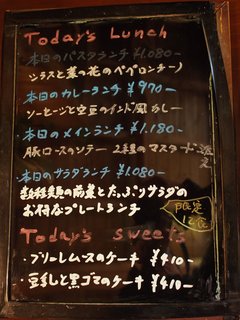 Today's Lunch
本日のパスタランチ ¥1.080-
(シラスと菜の花のペペロンチーノ)
本日のカレーランチ ¥970-
ソーセージと空豆のインド風カレー
本日のメインランチ ¥1.180-
豚ロースのソテー 2種のマスタード
・本日のサラダランチ ¥1.080-
数種類の前菜とたっぷりサラダの
お得なプレートランチ
限定
12食
Today's sweets
・ブリュレムースのケーキ ¥410-
・豆乳と黒ゴマのケーキ ¥410-